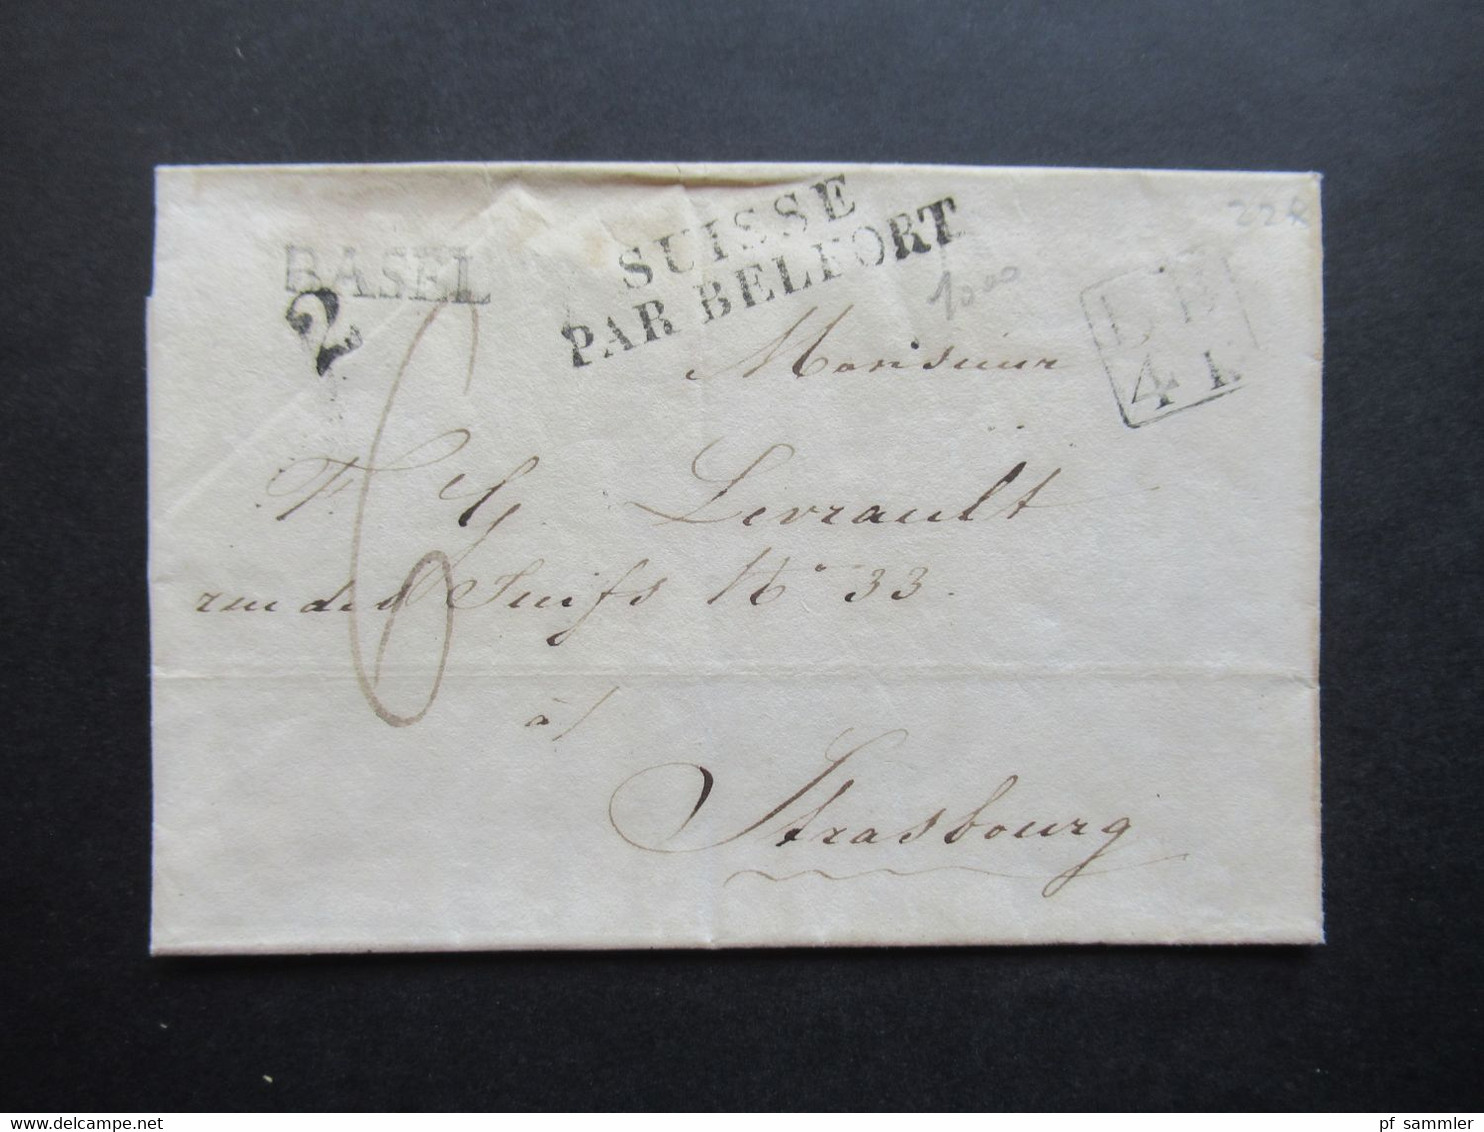 BASEL
2
SUISSE
PAR BELFORT
1000
22
L B
4 K
6
Monsieur
F. G. Levrault
rue des Juifs No 33.
à
Strasbourg
pf_sammler